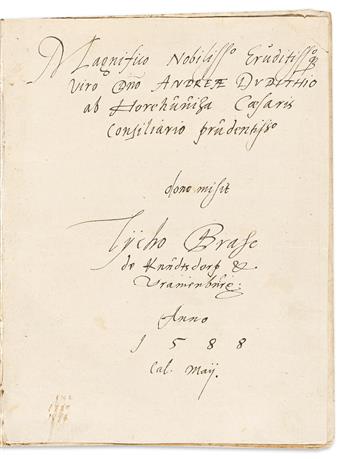 Magnifico Nobilisso Eruditissoq
Viro Dno ANDREÆ DVDITHIO
ab Horehuuiza Cæsaris
Consiliario prudentisso
dono misit
Tÿcho Brahe
de Knudtsdorp &
Vranienburg:
Anno
1588
Cal. Maÿ.